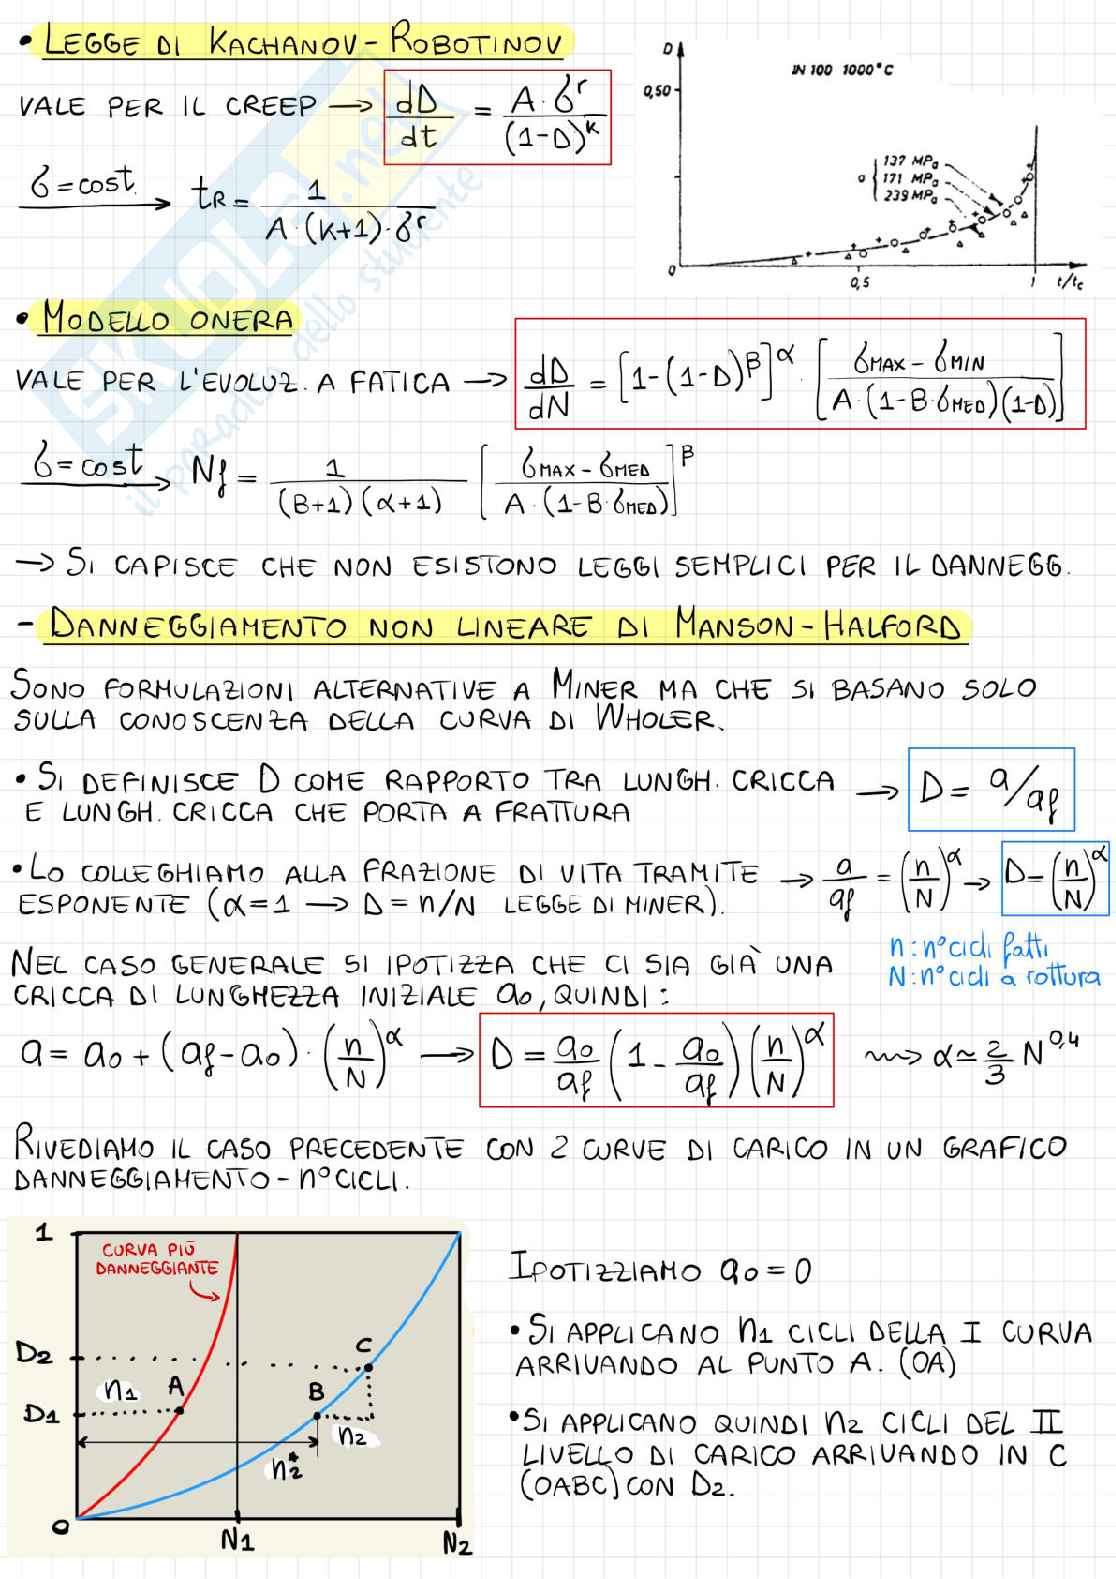 • LEGGE DI KACHANOV-ROBOTINOV
VALE PER IL CREEP → dD/dt = A·σ^r / (1-D)^k
σ=cost. → tR = 1 / A·(k+1)·σ^r
D
IN 100 1000°C
0,50
137 MPa
o { 171 MPa
239 MPa
0
0,5
1
t/tc
• MODELLO ONERA
VALE PER L'EVOLUZ. A FATICA → dD/dN = [1-(1-D)^β]^α · [σMAX - σMIN / A·(1-B·σMED)(1-D)]
σ=cost → Nf = 1 / (B+1)(α+1) [σMAX - σMED / A·(1-B·σMED)]^β
→ SI CAPISCE CHE NON ESISTONO LEGGI SEMPLICI PER IL DANNEGG.
- DANNEGGIAMENTO NON LINEARE DI MANSON-HALFORD
SONO FORMULAZIONI ALTERNATIVE A MINER MA CHE SI BASANO SOLO
SULLA CONOSCENZA DELLA CURVA DI WHOLER.
• SI DEFINISCE D COME RAPPORTO TRA LUNGH. CRICCA
E LUNGH. CRICCA CHE PORTA A FRATTURA → D = a/af
• LO COLLEGHIAMO ALLA FRAZIONE DI VITA TRAMITE
ESPONENTE (α=1 → D=n/N LEGGE DI MINER). → a/af = (n/N)^α → D=(n/N)^α
n: n° cicli fatti
N: n° cicli a rottura
NEL CASO GENERALE SI IPOTIZZA CHE CI SIA GIÀ UNA
CRICCA DI LUNGHEZZA INIZIALE a0, QUINDI:
a = a0 + (af-a0)·(n/N)^α → D = a0/af (1 - a0/af)(n/N)^α ⇝ α ≃ 2/3 N^0,4
RIVEDIAMO IL CASO PRECEDENTE CON 2 CURVE DI CARICO IN UN GRAFICO
DANNEGGIAMENTO - n° CICLI.
1
CURVA PIÙ
DANNEGGIANTE
D2
C
n1
A
B
D1
n2
n2*
0
N1
N2
IPOTIZZIAMO a0 = 0
• SI APPLICANO n1 CICLI DELLA I CURVA
ARRIVANDO AL PUNTO A. (OA)
• SI APPLICANO QUINDI n2 CICLI DEL II
LIVELLO DI CARICO ARRIVANDO IN C
(OABC) CON D2.
SKUOLA.net
il paradiso dello studente